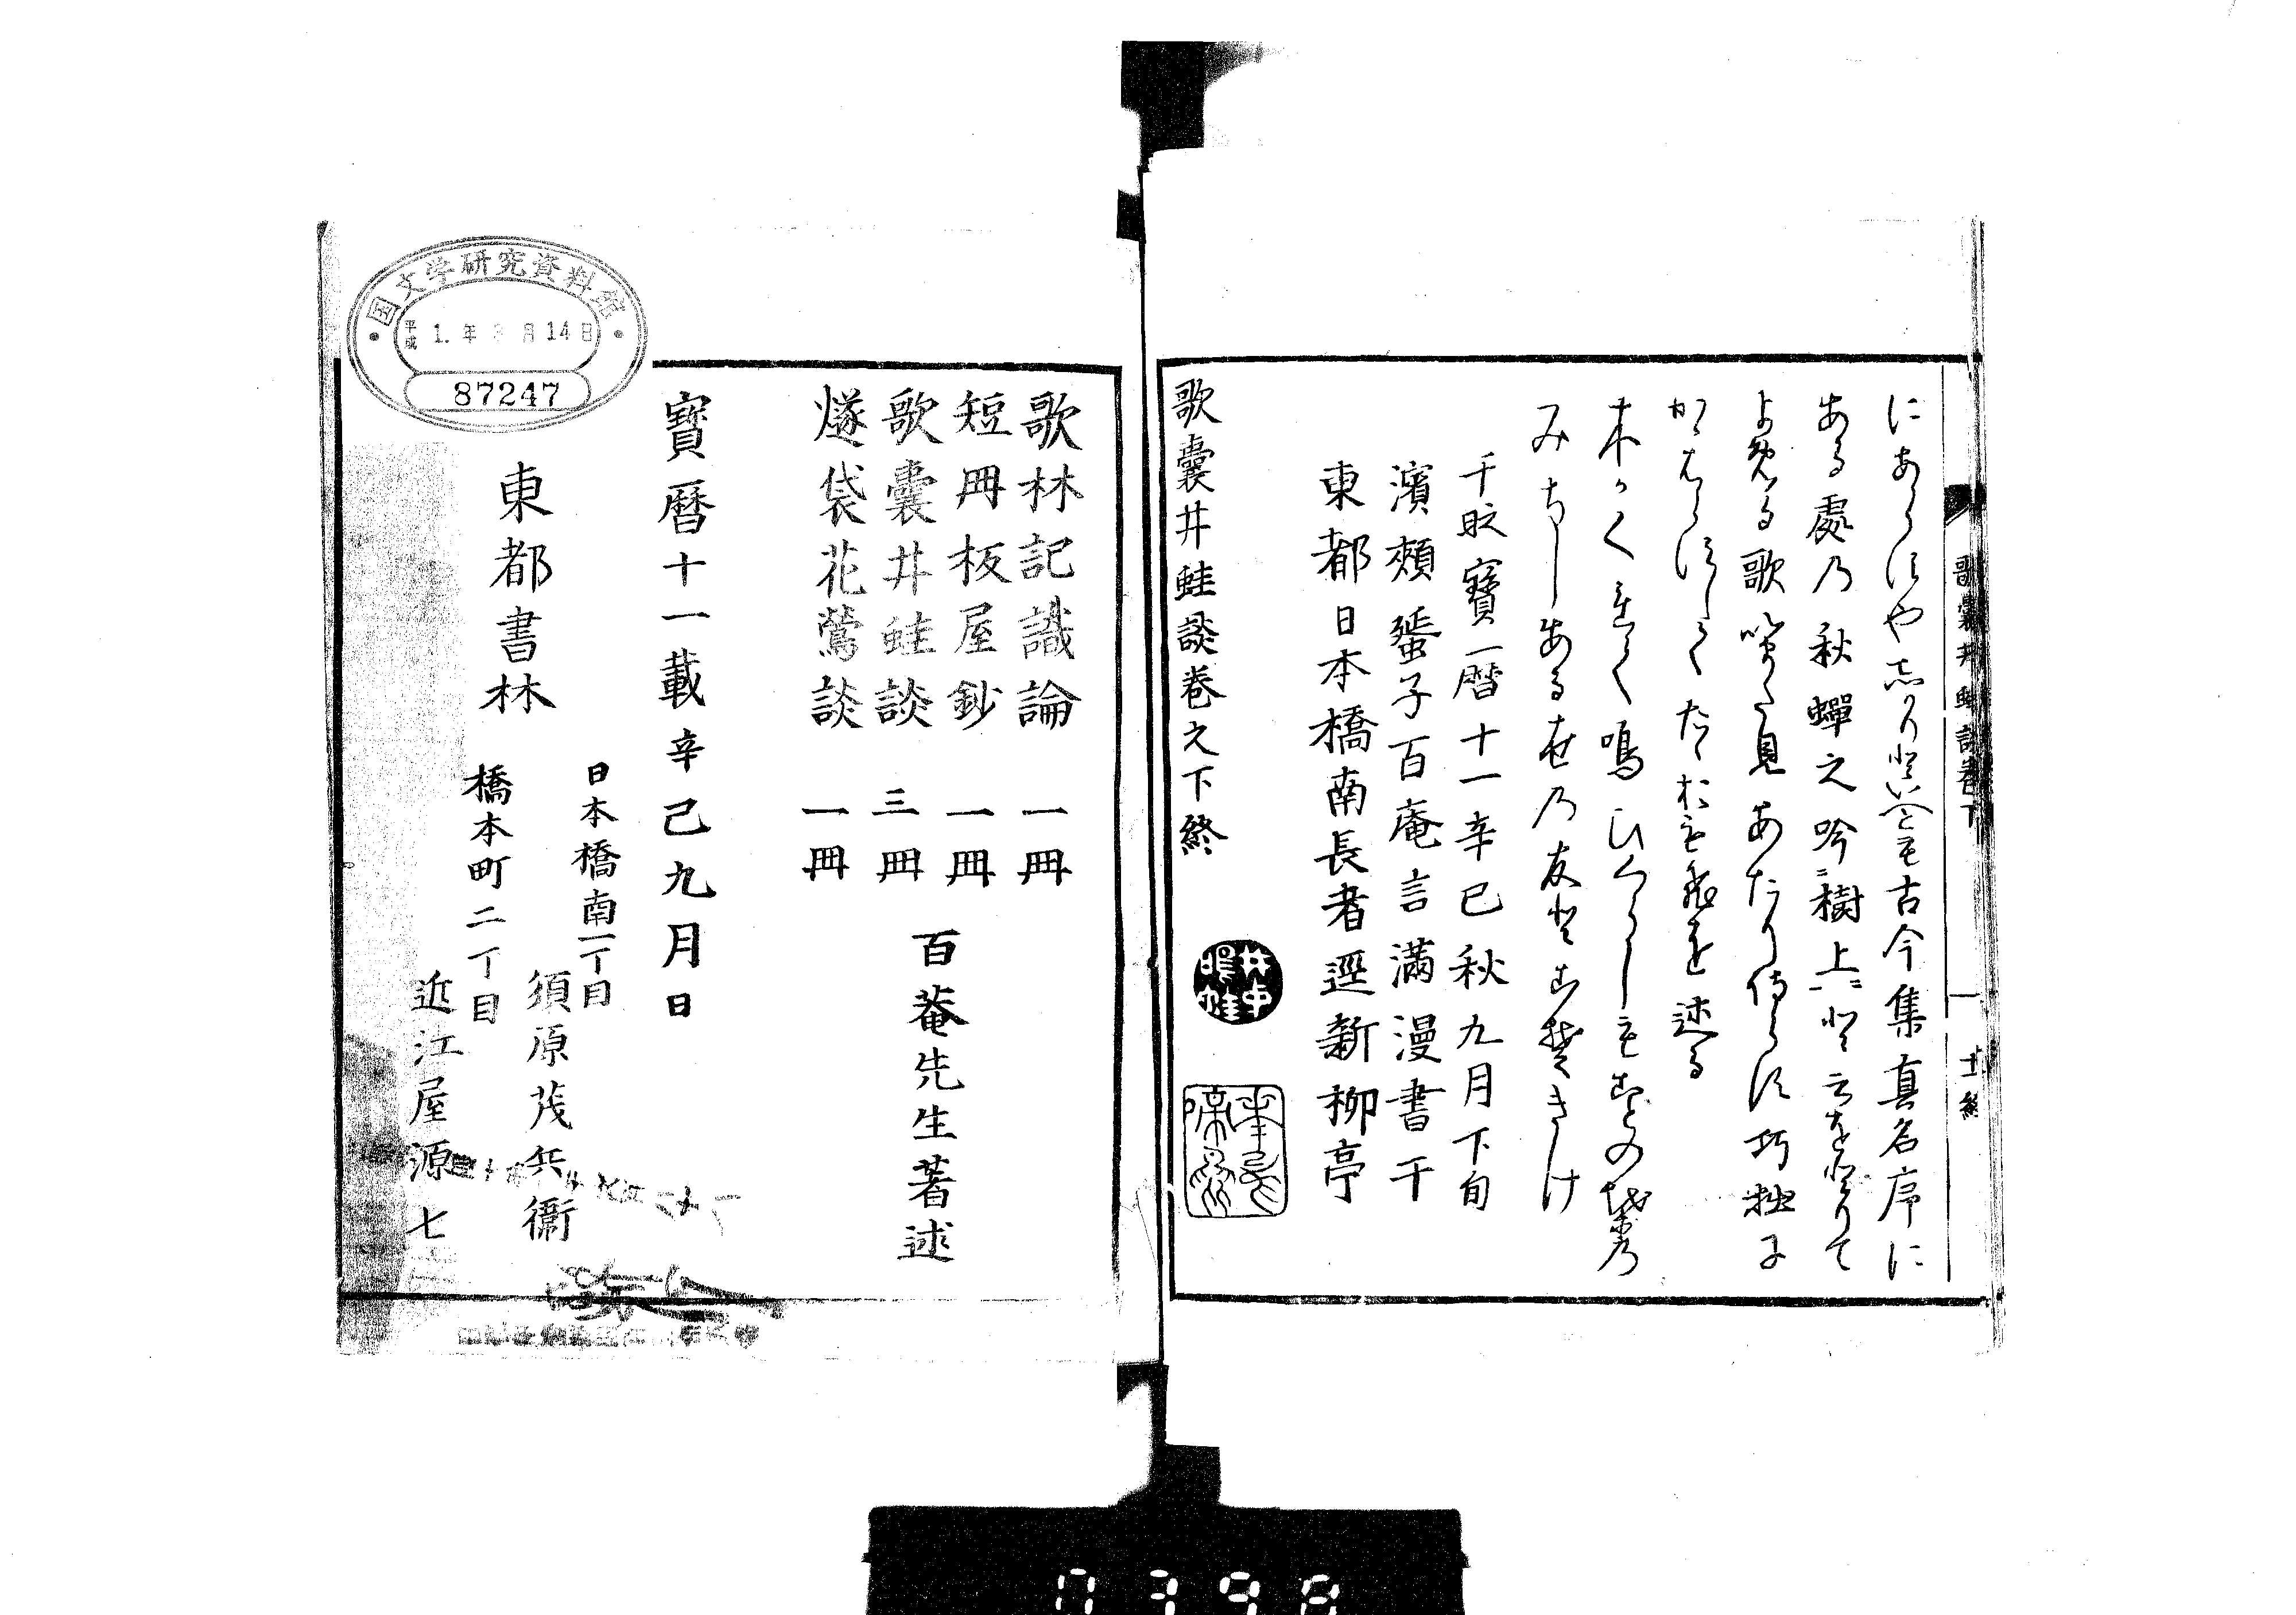 歌囊井蛙談卷下
十一終
にあらすや志かりといへとも古今集真名序に
ある處乃秋蟬之吟樹上と云をとりて
よめる歌いまた見あたり侍らす巧拙に
かゝはらすしてたゝおもひを述る
木かくれて鳴ひくらしもことの葉乃
みちしある世乃友とこそきけ
于時寶暦十一辛巳秋九月下旬
濱頰蜑子百庵言滿漫書干
東都日本橋南長者逕新柳亭
歌囊井蛙談卷之下終
歌林記識論 一冊
短冊板屋鈔 一冊
歌囊井蛙談 三冊
燧袋花鶯談 一冊
百菴先生著述
寶暦十一載辛己九月日
東都書林
日本橋南一丁目
須原茂兵衞
橋本町二丁目
近江屋源七
国文学研究資料館
平成1.年3月14日
87247
0398